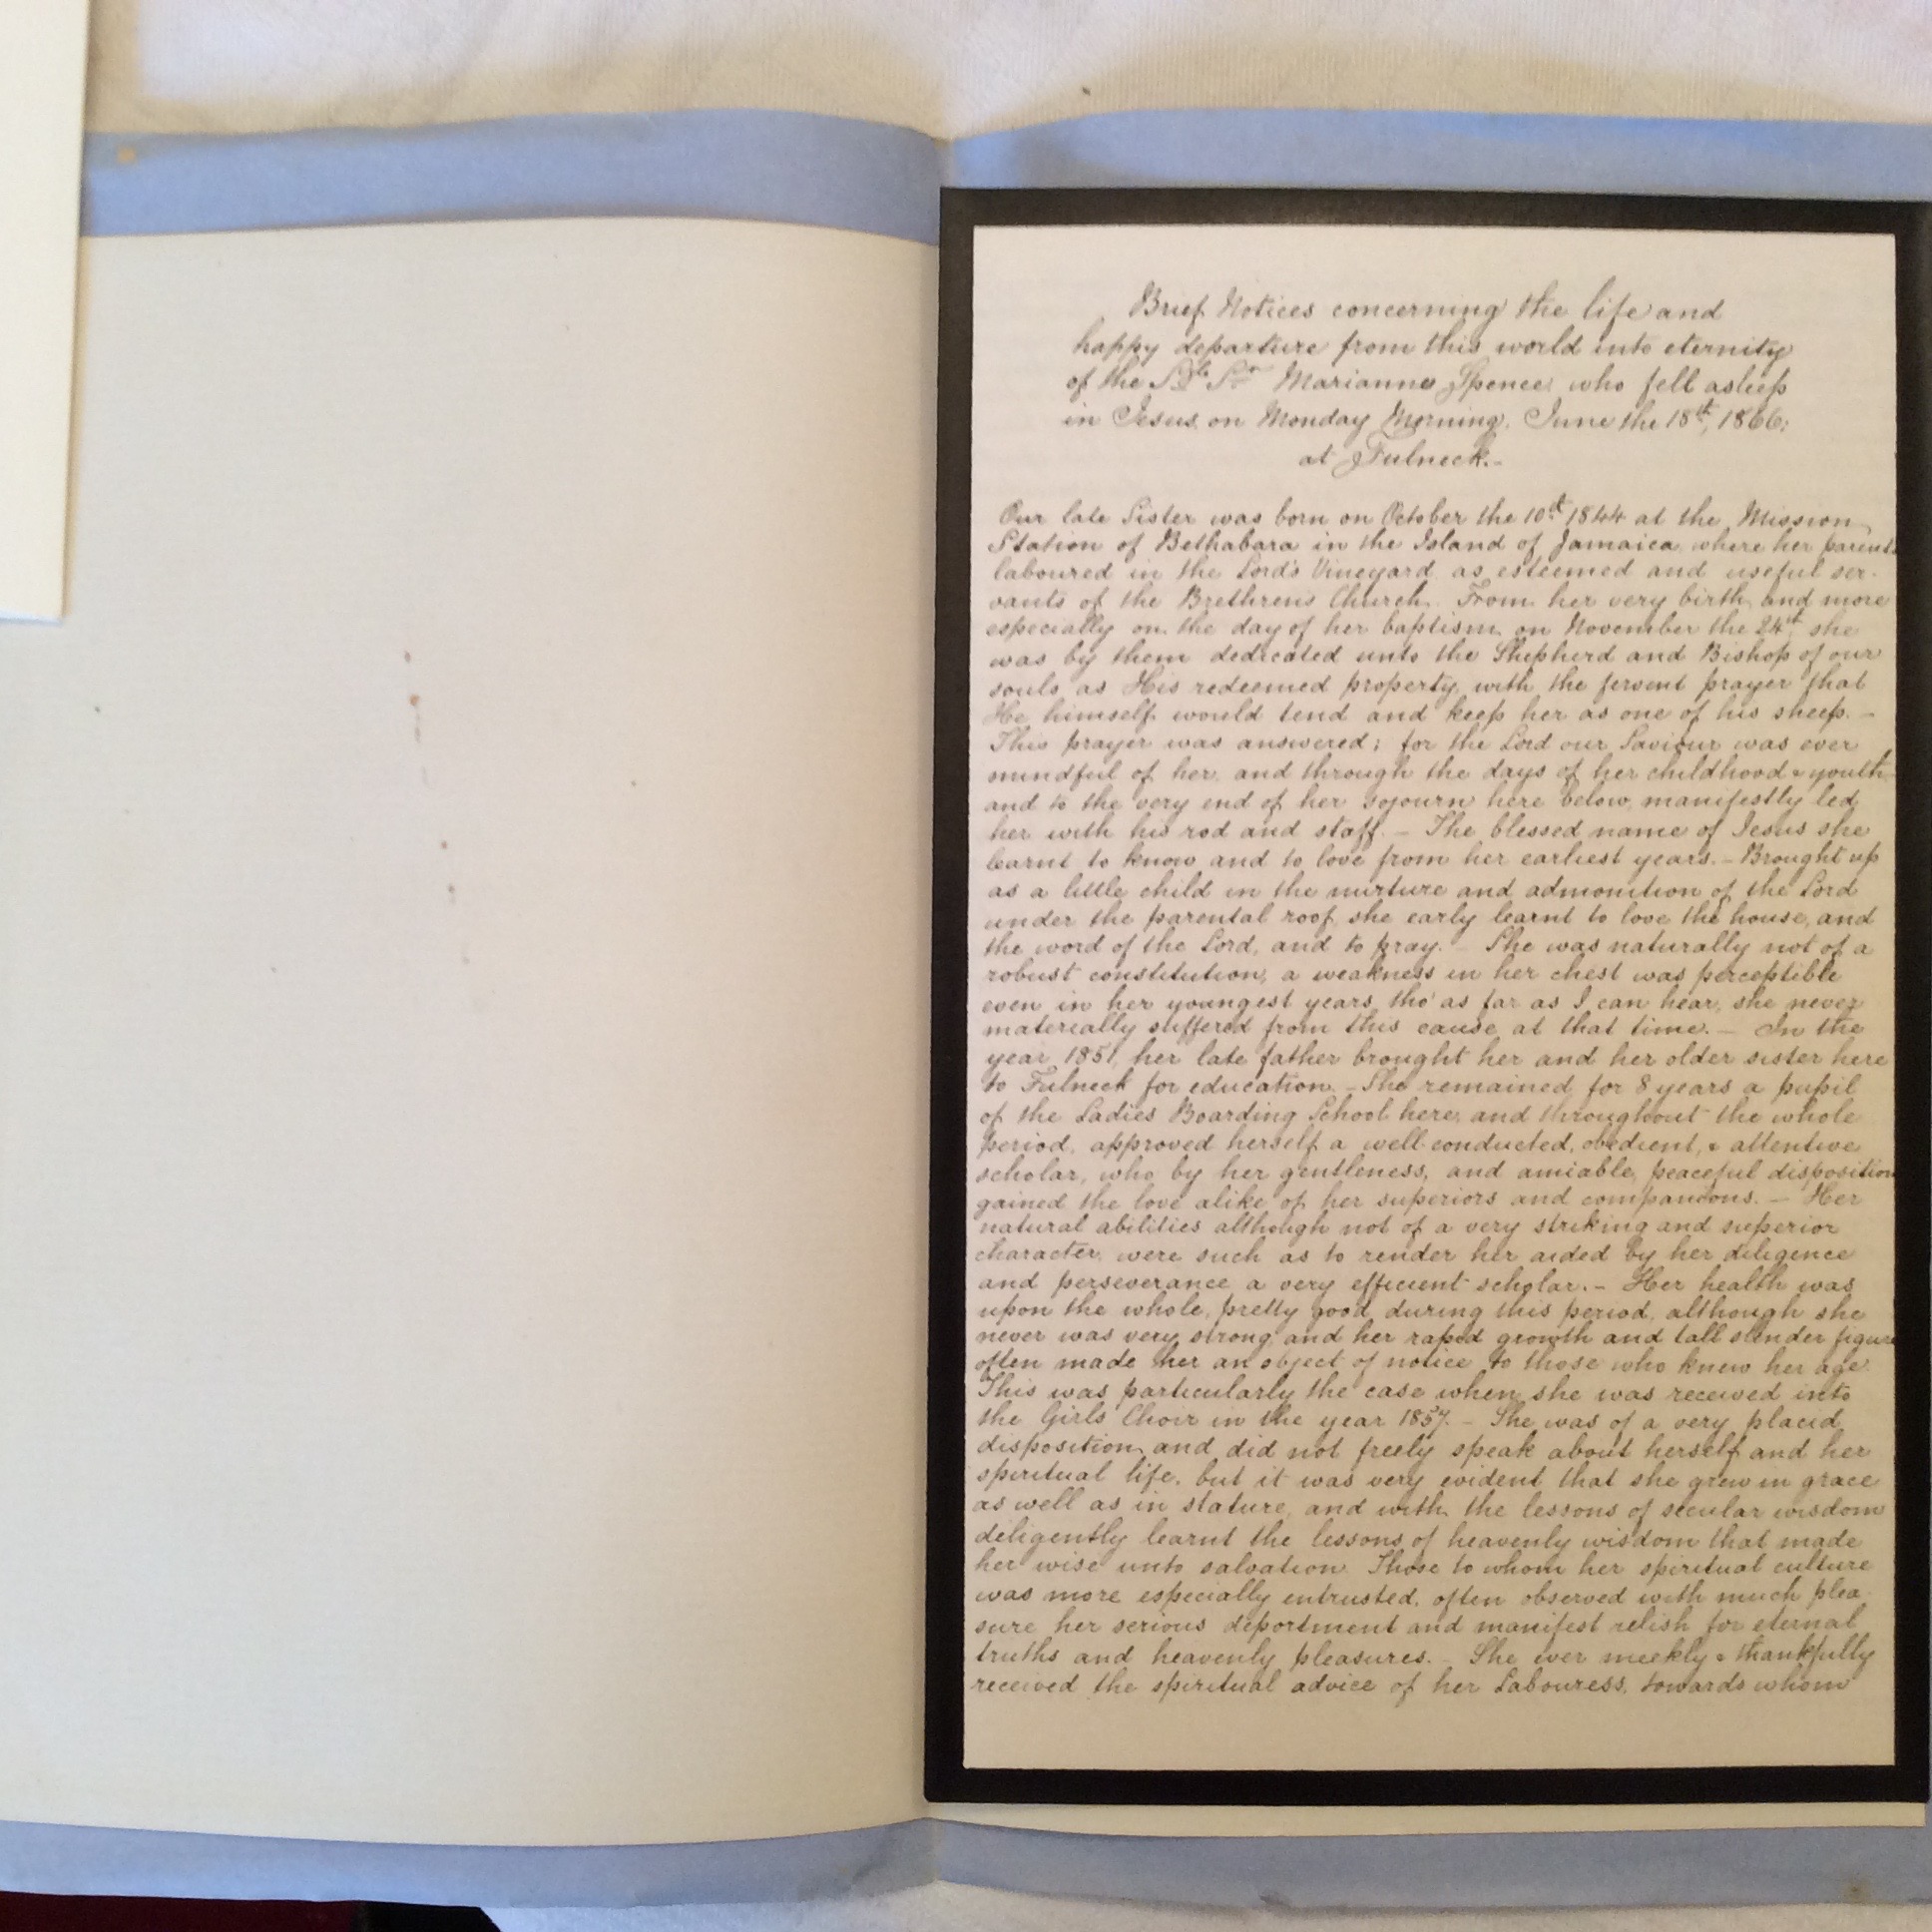 Brief Notices concerning the life and
happy departure from this world into eternity
of the Sgle Sr Marianne Spence who fell asleep
in Jesus on Monday Morning, June the 18th, 1866,
at Fulneck.-
Our late Sister was born on October the 10th 1844 at the Mission
Station of Bethabara in the Island of Jamaica where her parents
laboured in the Lord's Vineyard as esteemed and useful ser-
vants of the Brethren's Church. From her very birth and more
especially on the day of her baptism on November the 24th she
was by them dedicated unto the Shepherd and Bishop of our
souls, as His redeemed property, with the fervent prayer that
He himself would tend and keep her as one of his sheep. -
This prayer was answered; for the Lord our Saviour was ever
mindful of her, and through the days of her childhood & youth
and to the very end of her sojourn here below, manifestly led
her with his rod and staff. - The blessed name of Jesus she
learnt to know and to love from her earliest years. - Brought up
as a little child in the nurture and admonition of the Lord
under the parental roof, she early learnt to love the house, and
the word of the Lord, and to pray. - She was naturally not of a
robust constitution, a weakness in her chest was perceptible
even in her youngest years, tho' as far as I can hear, she never
materially suffered from this cause at that time. - In the
year 1851, her late father brought her and her older sister here
to Fulneck for education. - She remained for 8 years a pupil
of the Ladies Boarding School here, and throughout the whole
period, approved herself a well-conducted, obedient, & attentive
scholar, who by her gentleness, and amiable, peaceful disposition
gained the love alike of her superiors and companions. - Her
natural abilities although not of a very striking and superior
character, were such as to render her aided by her diligence
and perseverance a very efficient scholar. - Her health was
upon the whole, pretty good during this period, although she
never was very strong, and her rapid growth and tall slender figure
often made her an object of notice to those who knew her age.
This was particularly the case when she was received into
the Girls Choir in the year 1857. - She was of a very placid
disposition, and did not freely speak about herself and her
spiritual life, but it was very evident that she grew in grace
as well as in stature, and with the lessons of secular wisdom
diligently learnt the lessons of heavenly wisdom that made
her wise unto salvation. Those to whom her spiritual culture
was more especially entrusted, often observed with much plea-
sure her serious deportment and manifest relish for eternal
truths and heavenly pleasures. - She ever meekly & thankfully
received the spiritual advice of her Labouress, towards whom